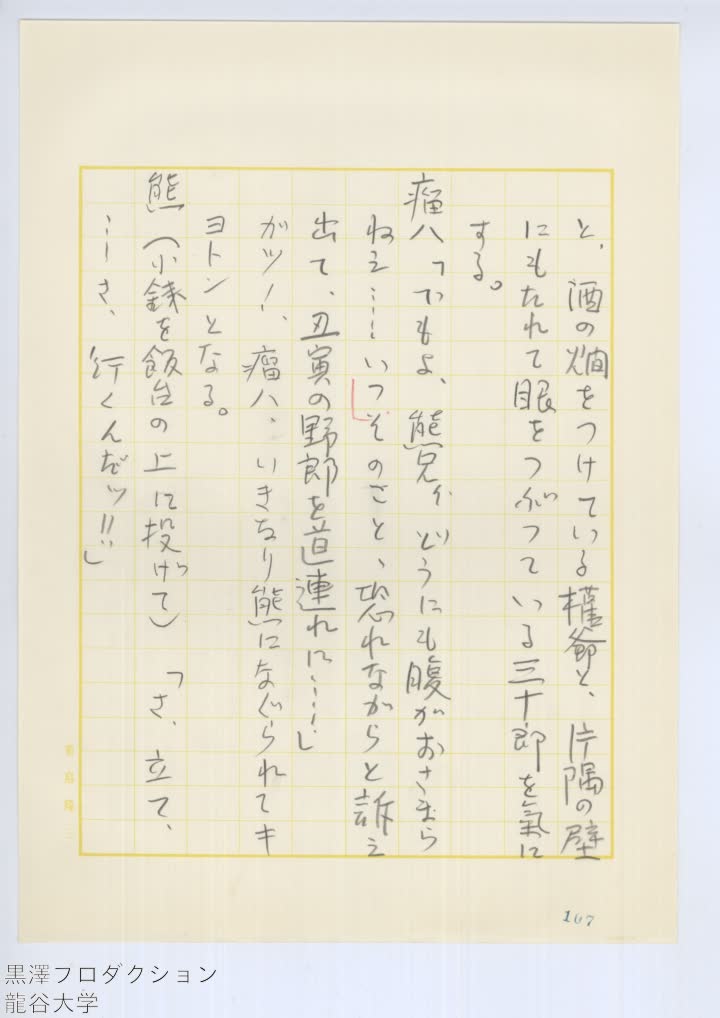 と、酒の燗をつけている権爺と、片隅の壁
にもたれて眼をつぶつている三十郎を氣に
する。
瘤八「でもよ、熊兄イ、どうにも腹がおさまら
ねえ……いつそのこと、恐れながらと訴え
出て、丑寅の野郎を道連れに……」
ガツ！、瘤八、いきなり熊になぐられてキ
ヨトンとなる。
熊（小銭を飯台の上に投げて）「さ、立て、
……さ、行くんだッ!!」
167
黒澤プロダクション
龍谷大学